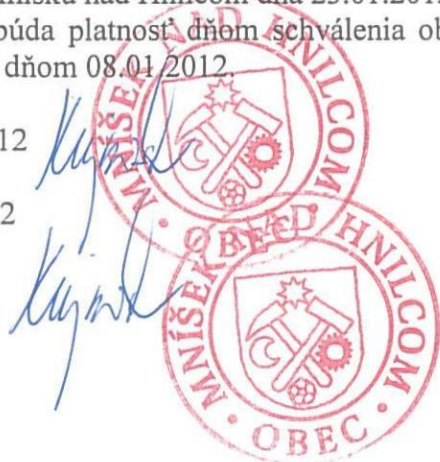 nad Hnilcom dňa
púda platnosť dňom schválenia ob
dňom 08.01.2012.
12
2
MNÍŠEK NAD HNILCOM • OBEC •
MNÍŠEK NAD HNILCOM • OBEC •